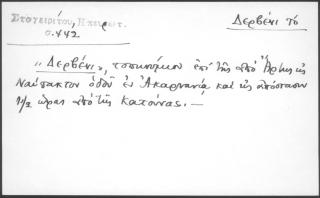 Στογειρίτου, Ηπειρωτ.
σ. 442
Δερβένι τό
"Δερβένι", τοπωνύμιον ἐπί τῆς ἀπό Ἄρτης εἰς
Ναύπακτον ὁδοῦ ἐν Ἀκαρνανίᾳ καί εἰς ἀπόστασιν
1/2 ὥρας ἀπό τῆς Κατούνας. —